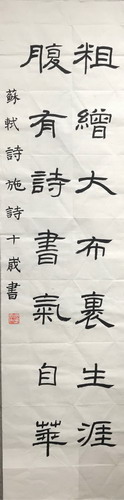 粗繒大布裹生涯
腹有詩書氣自華
蘇軾詩施詩十歲書